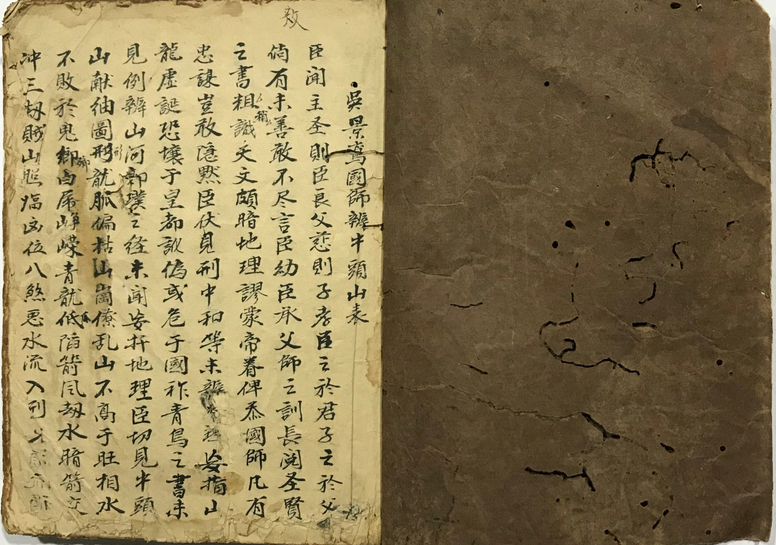 吳景鸞國師辨牛頭山表
臣聞主圣則臣良父慈則子孝臣之於君子之於父
倘有未善敢不尽言臣幼臣承父師之訓長閱圣賢
之書粗識天文頗暗地理謬蒙帝眷俾忝國師凡有
忠諫豈敢隱默臣伏見刑中和等未辨 妄指山
龍虛誕恐壤于皇都詐偽或危于國祚青鳥之書未
見例辨山河郭璞之經未聞妄扦地理臣切見牛頭
山献仙圖形龍脈偏枯山崗僚乱山不高于旺相水
不败於鬼鄉白虎崢嶸青龍低陷箭風劫水暗箭交
冲三刼賊山 臨凶位八煞惡水流入刑
败